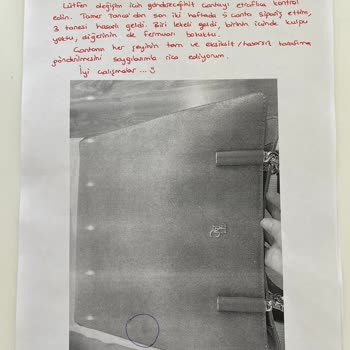 Lütfen değişim için göndereceğiniz çantayı etraflıca kontrol
edin. Tamer Tanca'dan son iki haftada 4 çanta sipariş ettim,
3 tanesi hasarlı geldi. Biri lekeli geldi, birinin içinde kulpu
yoktu, diğerinin de fermuarı bozuktu.
Çantanın her şeyinin tam ve eksiksiz/hasarsız tarafıma
gönderilmesini saygılarımla rica ediyorum.
İyi çalışmalar...